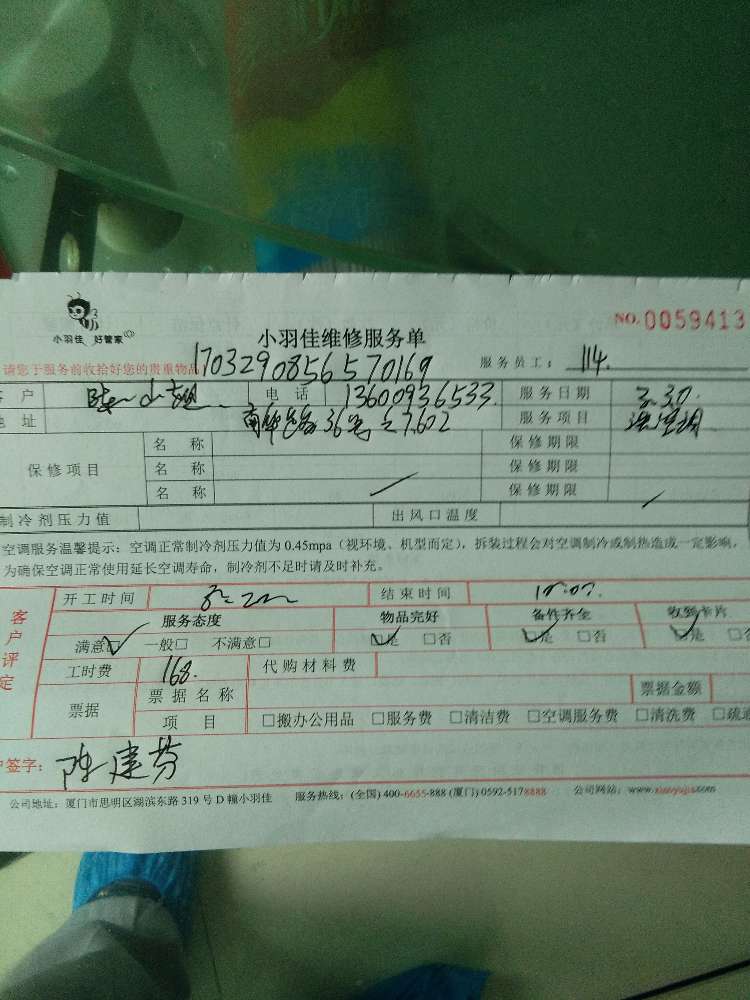 小羽佳 好管家
小羽佳维修服务单
NO.0059413
请您于服务前收拾好您的贵重物品!
1703290856570169
服务员工: 114.
客户 小姐 电话 13600936533 服务日期 3.30
地址 36号之7.602 服务项目 洗空调
保修项目 名称 保修期限
名称 保修期限
名称 保修期限
制冷剂压力值 出风口温度
空调服务温馨提示:空调正常制冷剂压力值为 0.45mpa(视环境、机型而定),拆装过程会对空调制冷或制热造成一定影响,
为确保空调正常使用延长空调寿命,制冷剂不足时请及时补充。
客户评定
开工时间 结束时间
服务态度 物品完好 备件齐全 收到卡片
满意☑ 一般□ 不满意□ ☑是 □否 ☑是 □否 ☑是 □否
工时费 168. 代购材料费
票据 票据名称 票据金额
项目 □搬办公用品 □服务费 □清洁费 □空调服务费 □清洗费 □疏通
户签字: 陈建芬
公司地址:厦门市思明区湖滨东路 319 号 D 幢小羽佳 服务热线:(全国) 400-6655-888 (厦门) 0592-5178888 公司网站:www.xiaoyujia.com